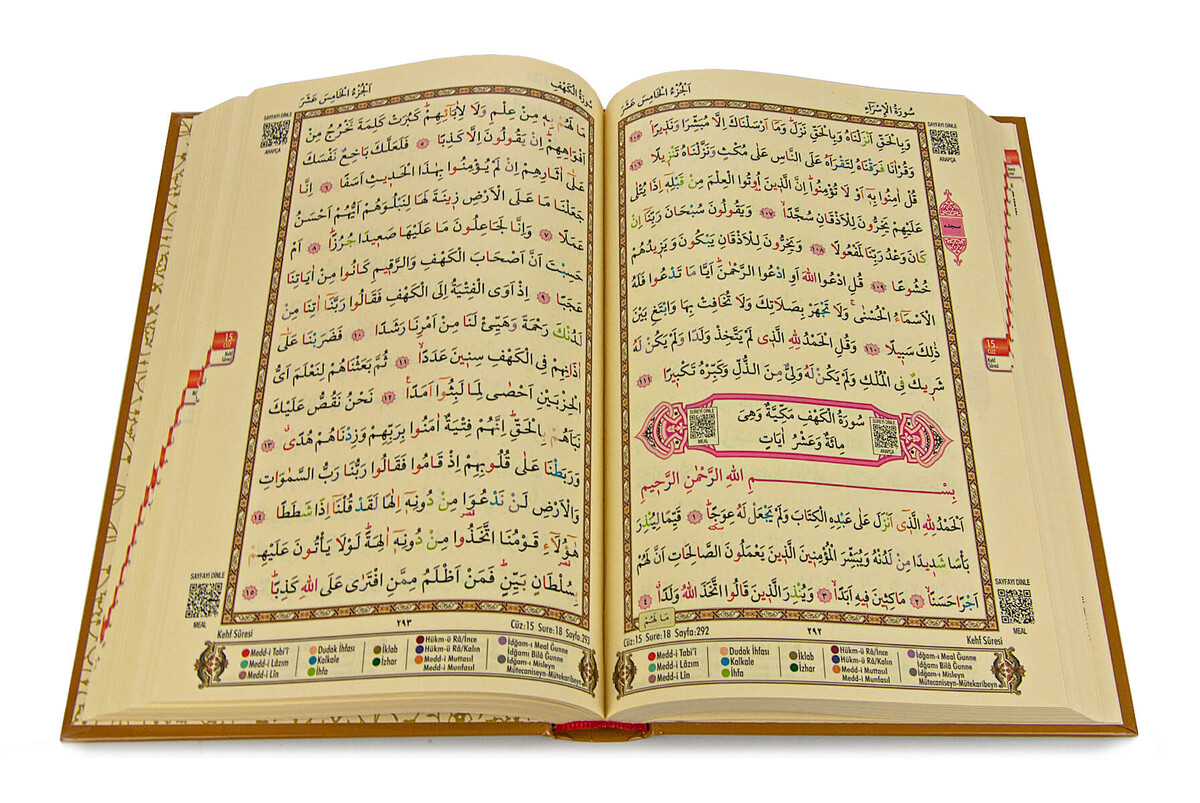 سُورَةُ الْاِسْرَاءِ
اَلْجُزْءُ الْخَامِسَ عَشَرَ
SAYFAYI DİNLE
ARAPÇA
وَبِالْحَقِّ اَنْزَلْنَاهُ وَبِالْحَقِّ نَزَلَۜ وَمَٓا اَرْسَلْنَاكَ اِلَّا مُبَشِّرًا وَنَذِيرًاۢ ١٠٥
وَقُرْاٰنًا فَرَقْنَاهُ لِتَقْرَاَهُ عَلَى النَّاسِ عَلٰى مُكْثٍ وَنَزَّلْنَاهُ تَنْز۪يلًا ١٠٦
قُلْ اٰمِنُوا بِه۪ٓ اَوْ لَا تُؤْمِنُواۜ اِنَّ الَّذ۪ينَ اُو۫تُوا الْعِلْمَ مِنْ قَبْلِه۪ٓ اِذَا يُتْلٰى
عَلَيْهِمْ يَخِرُّونَ لِلْاَذْقَانِ سُجَّدًاۙ ١٠٧ وَيَقُولُونَ سُبْحَانَ رَبِّنَٓا اِنْ
كَانَ وَعْدُ رَبِّنَا لَمَفْعُولًا ١٠٨ وَيَخِرُّونَ لِلْاَذْقَانِ يَبْكُونَ وَيَز۪يدُهُمْ
خُشُوعًا ١٠٩ قُلِ ادْعُوا اللّٰهَ اَوِ ادْعُوا الرَّحْمٰنَۜ اَيًّا مَا تَدْعُوا فَلَهُ
الْاَسْمَٓاءُ الْحُسْنٰىۚ وَلَا تَجْهَرْ بِصَلَاتِكَ وَلَا تُخَافِتْ بِهَا وَابْتَغِ بَيْنَ
ذٰلِكَ سَب۪يلًا ١١٠ وَقُلِ الْحَمْدُ لِلّٰهِ الَّذ۪ي لَمْ يَتَّخِذْ وَلَدًا وَلَمْ يَكُنْ لَهُ
شَر۪يكٌ فِي الْمُلْكِ وَلَمْ يَكُنْ لَهُ وَلِيٌّ مِنَ الذُّلِّ وَكَبِّرْهُ تَكْب۪يرًا ١١١
سجده
SUREYİ DİNLE
MEAL
سُورَةُ الْكَهْفِ مَكِّيَّةٌ وَهِىَ
مِائَةٌ وَعَشْرُ اٰيَاتٍ
SUREYİ DİNLE
ARAPÇA
بِسْمِ اللّٰهِ الرَّحْمٰنِ الرَّح۪يمِ
اَلْحَمْدُ لِلّٰهِ الَّذ۪ٓي اَنْزَلَ عَلٰى عَبْدِهِ الْكِتَابَ وَلَمْ يَجْعَلْ لَهُ عِوَجًاۜ ١ قَيِّمًا لِيُنْذِرَ
بَأْسًا شَد۪يدًا مِنْ لَدُنْهُ وَيُبَشِّرَ الْمُؤْمِن۪ينَ الَّذ۪ينَ يَعْمَلُونَ الصَّالِحَاتِ اَنَّ لَهُمْ
اَجْرًا حَسَنًاۙ ٢ مَاكِث۪ينَ ف۪يهِ اَبَدًاۙ ٣ وَيُنْذِرَ الَّذ۪ينَ قَالُوا اتَّخَذَ اللّٰهُ وَلَدًاۗ ٤
مَا لَهُمْ
SAYFAYI DİNLE
MEAL
15.
CÜZ
Kehf
Sûresi
Cüz:15 Sure:18 Sayfa:292
٢٩٢
Kehf Sûresi
Medd-i Tabi'î
Medd-i Lâzım
Medd-i Lîn
Dudak İhfası
Kalkale
İhfa
İklab
İzhar
Hükm-ü Râ/İnce
Hükm-ü Râ/Kalın
Medd-i Muttasıl
Medd-i Munfasıl
İdğam-ı Meal Ğunne
İdğamı Bilâ Ğunne
İdğam-ı Misleyn
Mütecaniseyn-Mütekaribeyn
سُورَةُ الْكَهْفِ
اَلْجُزْءُ الْخَامِسَ عَشَرَ
SAYFAYI DİNLE
ARAPÇA
مَا لَهُمْ بِه۪ مِنْ عِلْمٍ وَلَا لِاٰبَٓائِهِمْۜ كَبُرَتْ كَلِمَةً تَخْرُجُ مِنْ
اَفْوَاهِهِمْۜ اِنْ يَقُولُونَ اِلَّا كَذِبًا ٥ فَلَعَلَّكَ بَاخِعٌ نَفْسَكَ
عَلٰٓى اٰثَارِهِمْ اِنْ لَمْ يُؤْمِنُوا بِهٰذَا الْحَد۪يثِ اَسَفًا ٦ اِنَّا
جَعَلْنَا مَا عَلَى الْاَرْضِ ز۪ينَةً لَهَا لِنَبْلُوَهُمْ اَيُّهُمْ اَحْسَنُ
عَمَلًا ٧ وَاِنَّا لَجَاعِلُونَ مَا عَلَيْهَا صَع۪يدًا جُرُزًاۜ ٨ اَمْ
حَسِبْتَ اَنَّ اَصْحَابَ الْكَهْفِ وَالرَّق۪يمِ كَانُوا مِنْ اٰيَاتِنَا
عَجَبًا ٩ اِذْ اَوَى الْفِتْيَةُ اِلَى الْكَهْفِ فَقَالُوا رَبَّنَٓا اٰتِنَا مِنْ
لَدُنْكَ رَحْمَةً وَهَيِّئْ لَنَا مِنْ اَمْرِنَا رَشَدًا ١٠ فَضَرَبْنَا عَلٰٓى
اٰذَانِهِمْ فِي الْكَهْفِ سِن۪ينَ عَدَدًاۙ ١١ ثُمَّ بَعَثْنَاهُمْ لِنَعْلَمَ اَيُّ
الْحِزْبَيْنِ اَحْصٰى لِمَا لَبِثُٓوا اَمَدًا۟ ١٢ نَحْنُ نَقُصُّ عَلَيْكَ
نَبَاَهُمْ بِالْحَقِّۜ اِنَّهُمْ فِتْيَةٌ اٰمَنُوا بِرَبِّهِمْ وَزِدْنَاهُمْ هُدًىۗ ١٣
وَرَبَطْنَا عَلٰى قُلُوبِهِمْ اِذْ قَامُوا فَقَالُوا رَبُّنَا رَبُّ السَّمٰوَاتِ
وَالْاَرْضِ لَنْ نَدْعُوَ۬ا مِنْ دُونِه۪ٓ اِلٰهًا لَقَدْ قُلْنَٓا اِذًا شَطَطًا ١٤
هٰٓؤُ۬لَٓاءِ قَوْمُنَا اتَّخَذُوا مِنْ دُونِه۪ٓ اٰلِهَةًۜ لَوْلَا يَأْتُونَ عَلَيْهِمْ
بِسُلْطَانٍ بَيِّنٍۜ فَمَنْ اَظْلَمُ مِمَّنِ افْتَرٰى عَلَى اللّٰهِ كَذِبًاۜ ١٥
SAYFAYI DİNLE
MEAL
15.
CÜZ
Kehf
Sûresi
Kehf Sûresi
٢٩٣
Cüz:15 Sure:18 Sayfa:293
Medd-i Tabi'î
Medd-i Lâzım
Medd-i Lîn
Dudak İhfası
Kalkale
İhfa
İklab
İzhar
Hükm-ü Râ/İnce
Hükm-ü Râ/Kalın
Medd-i Muttasıl
Medd-i Munfasıl
İdğam-ı Meal Ğunne
İdğamı Bilâ Ğunne
İdğam-ı Misleyn
Mütecaniseyn-Mütekaribeyn